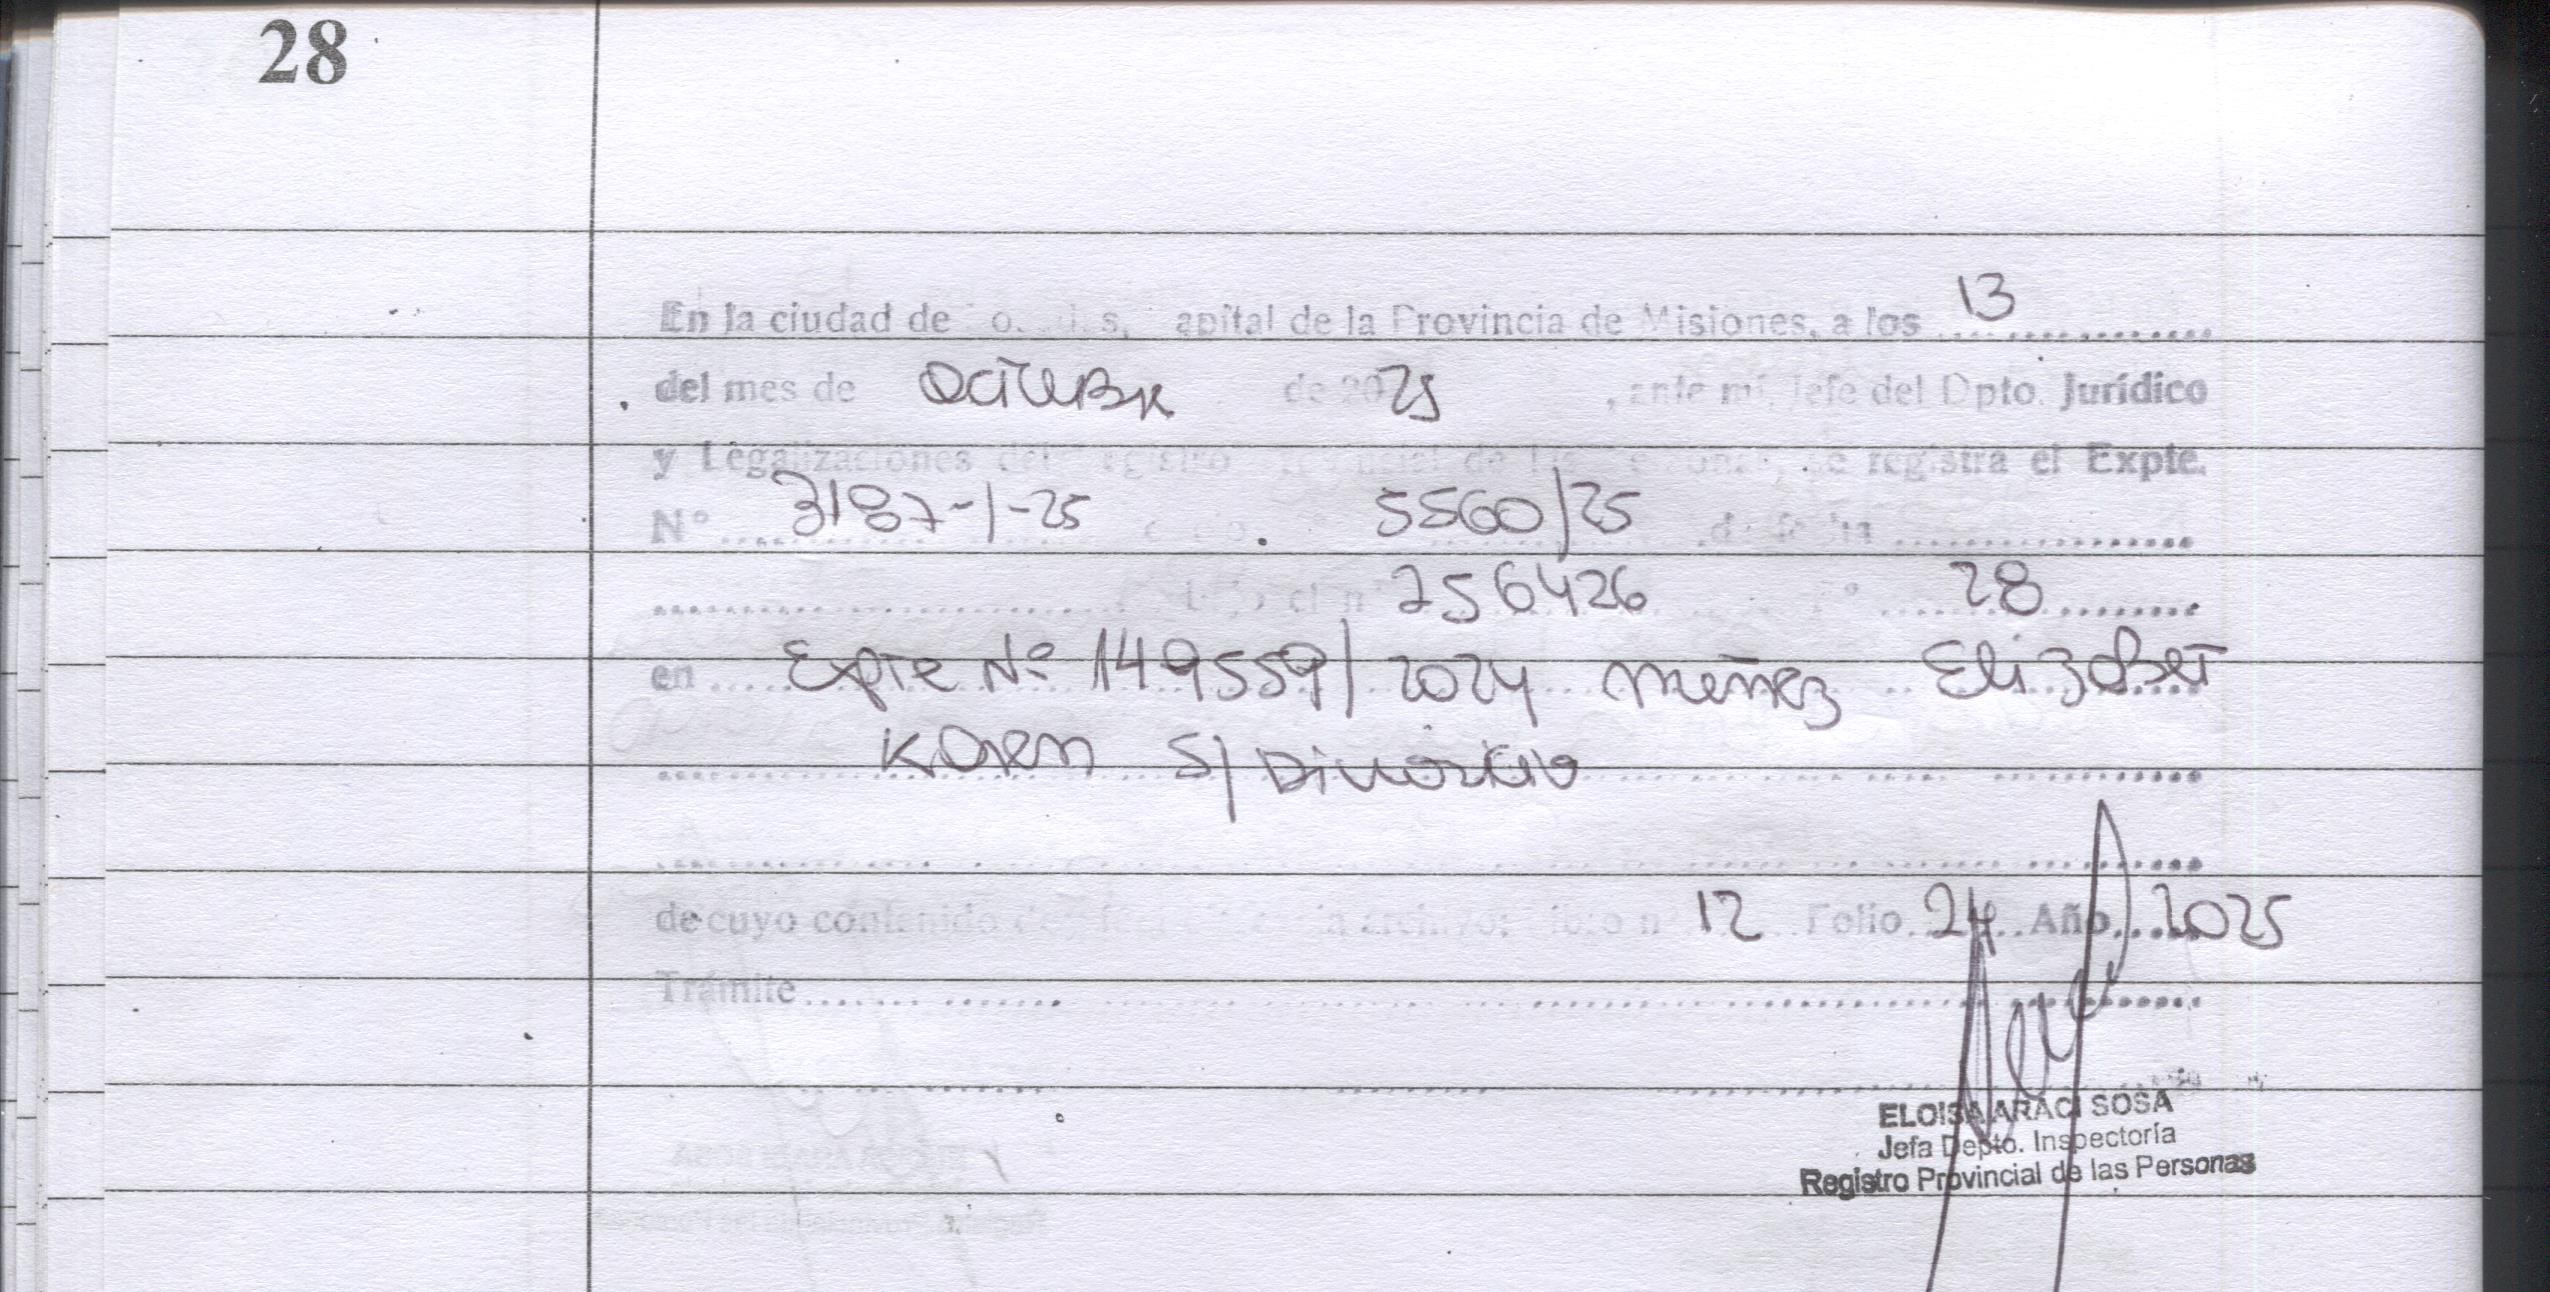 28
En la ciudad de Posadas, Capital de la Provincia de Misiones, a los 13
del mes de Octubre de 2025, ante mí, Jefe del Dpto. Jurídico
y Legalizaciones del Registro Provincial de las Personas, se registra el Expte.
Nº 3187-1-25 5560/25 de fecha
256426 28
en Expte Nº 149559/2024 Muñez Elizabet
Karen S/ Divorcio
de cuyo contenido archivo: Libro n 12 Folio 24 Año 2025
Trámite
ELOISA ARACI SOSA
Jefa Depto. Inspectoría
Registro Provincial de las Personas